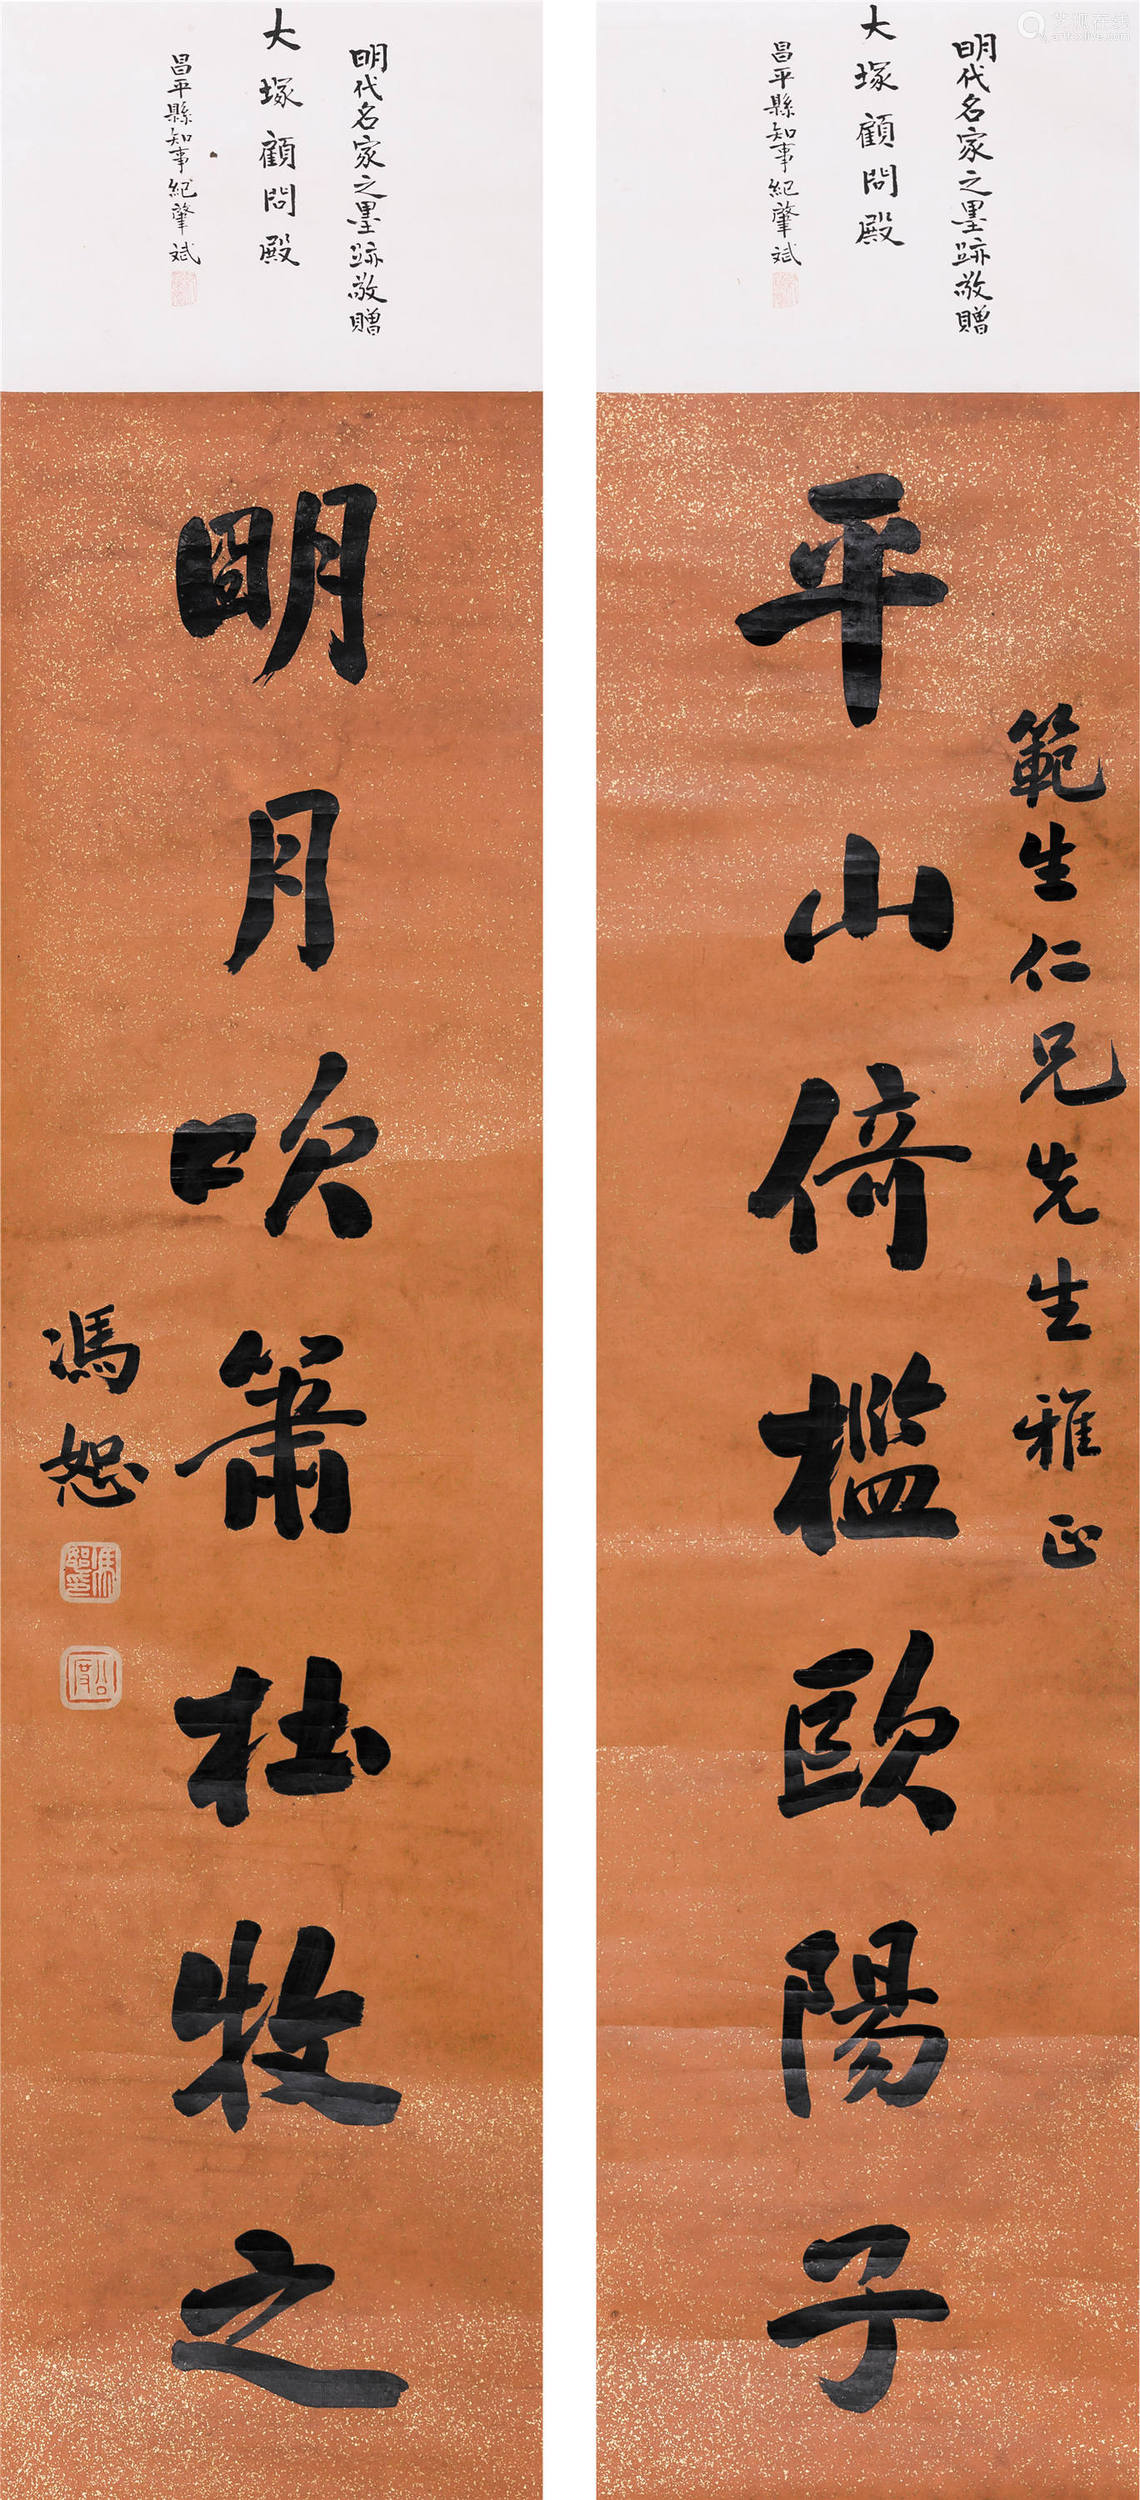 明代名家之墨跡敬贈
大塚顧問殿
昌平縣知事紀肇斌
範生仁兄先生雅正
平山倚檻歐陽子
明代名家之墨跡敬贈
大塚顧問殿
昌平縣知事紀肇斌
明月吹簫杜牧之
馮恕
馮恕之印
公度
艺狐在线